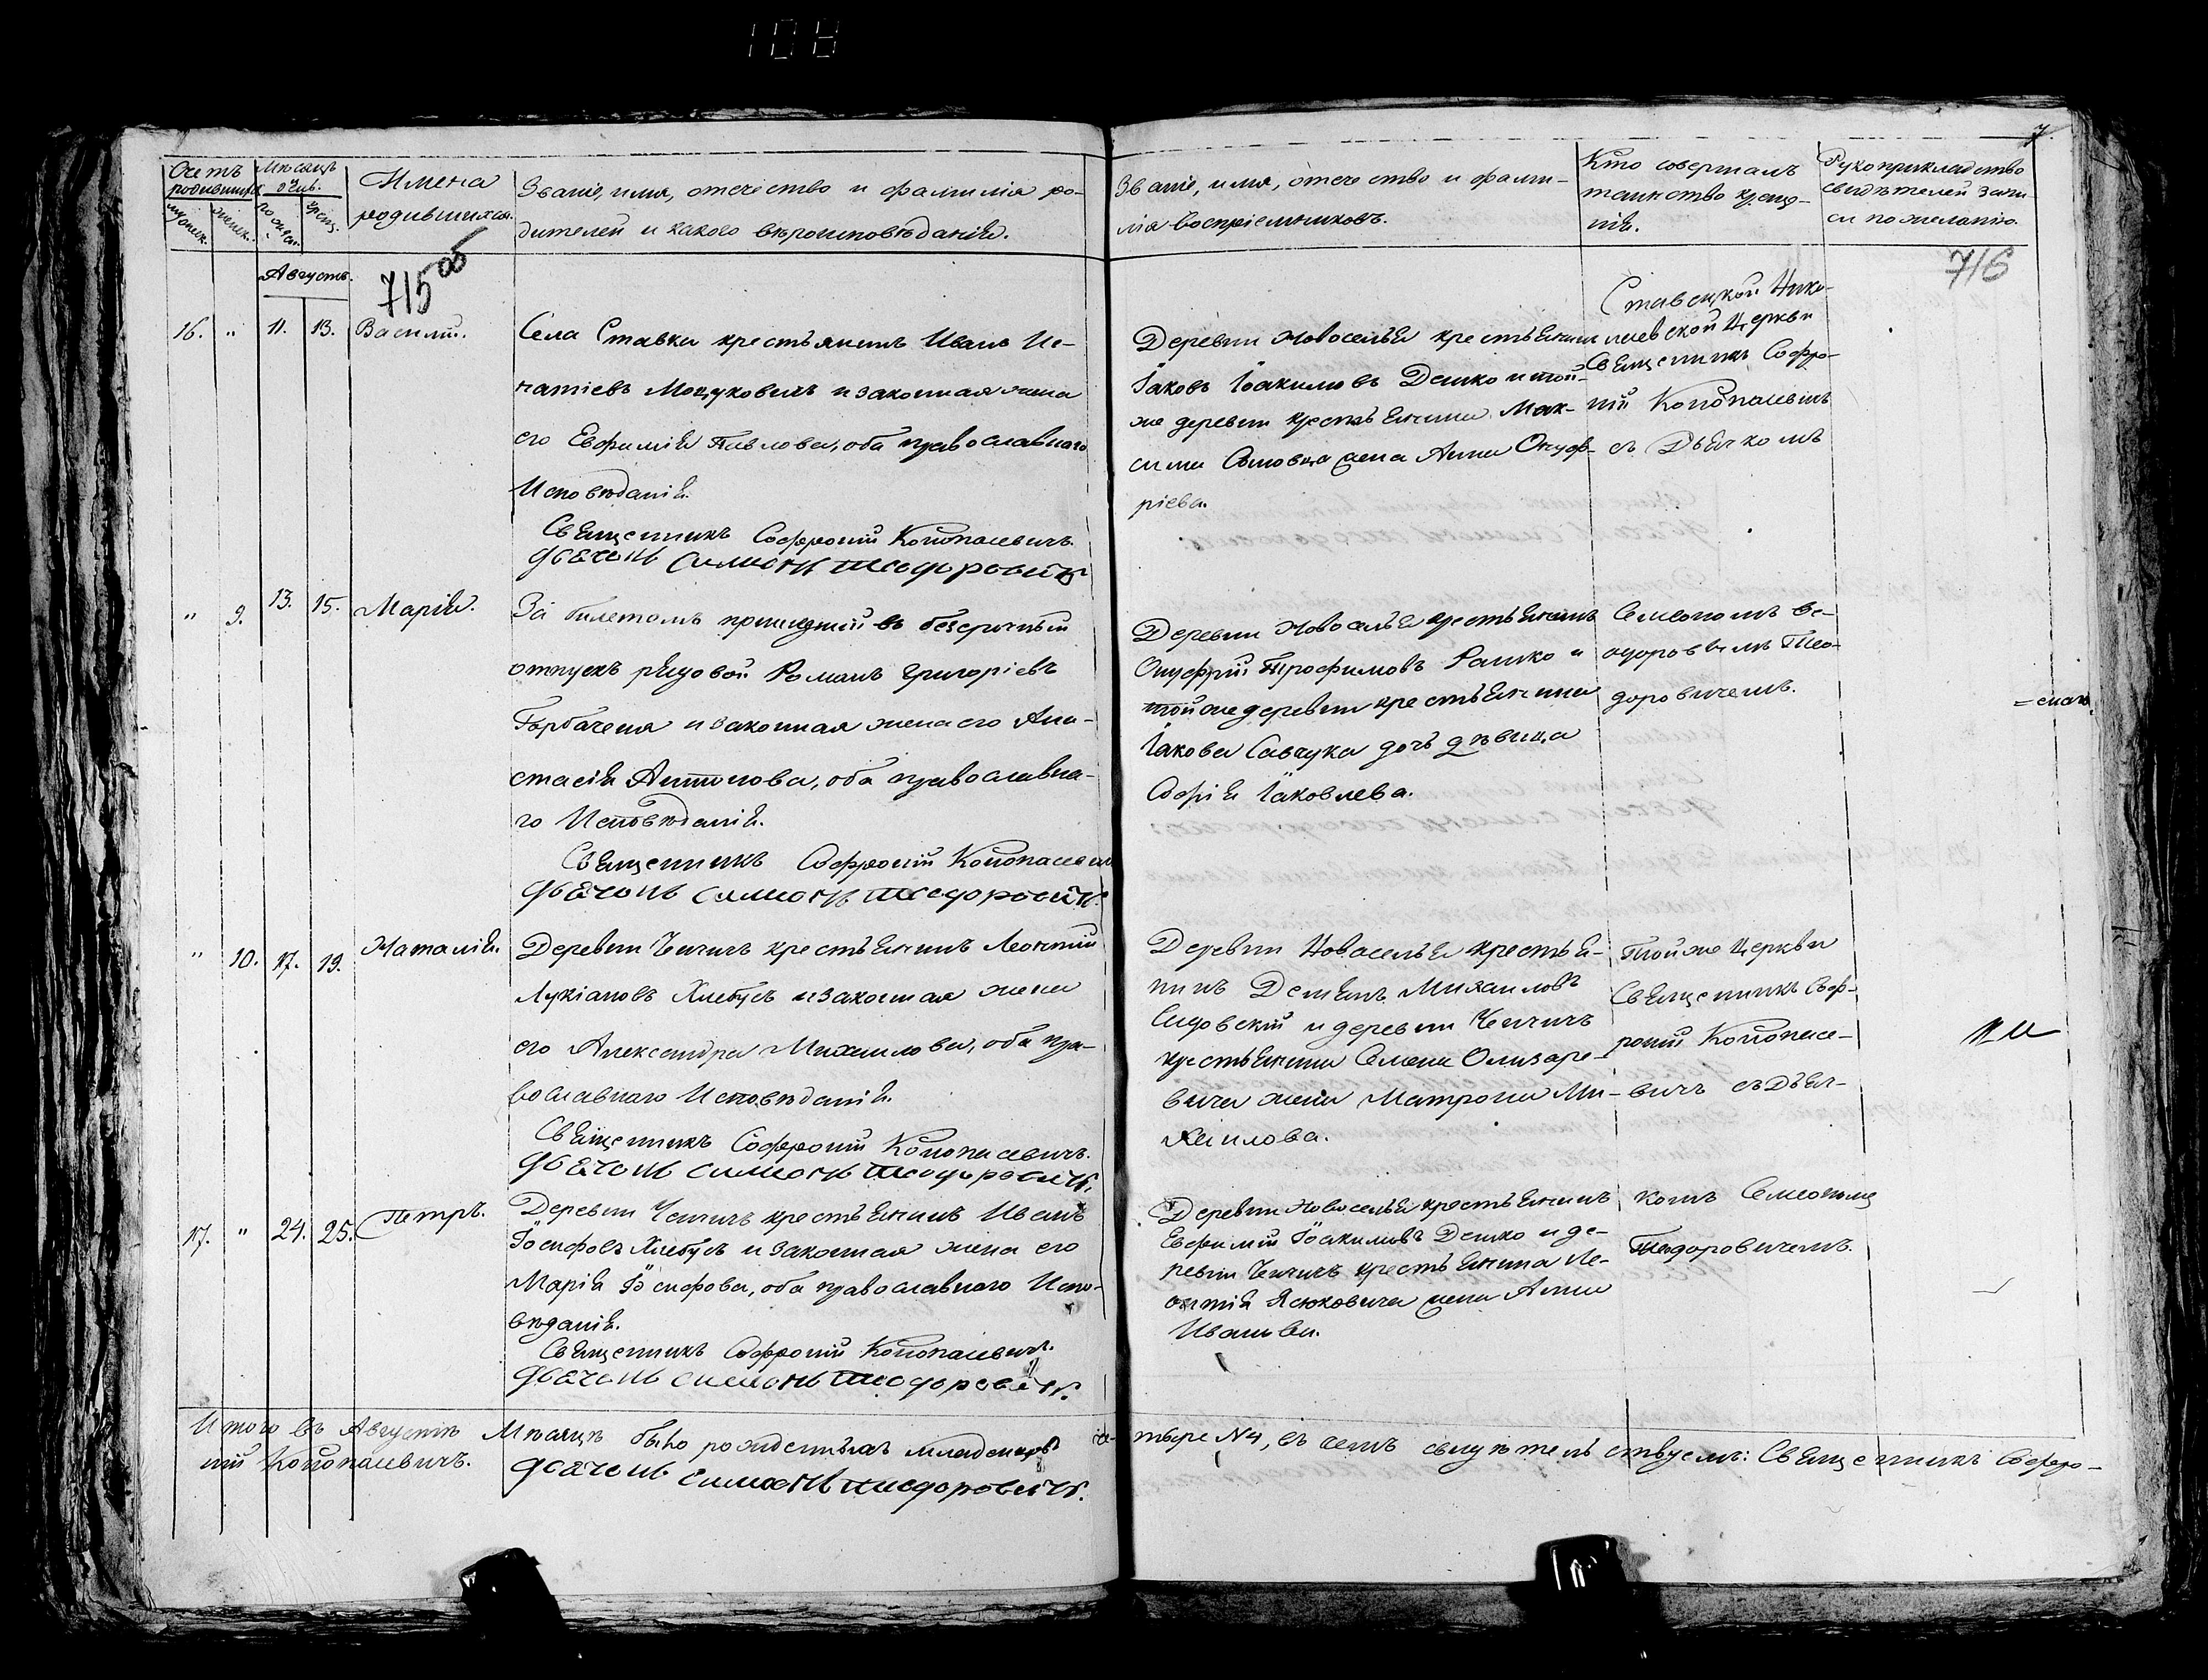 108
7
Счетъ родившихся
Мѣсяцъ и день.
Имена родившихся.
Званіе, имя, отечество и фамилія ро-
дителей и какого вѣроисповѣданія.
Званіе, имя, отечество и фами-
лія воспріемниковъ.
Кто совершалъ
таинство креще-
нія.
Рукоприкладство
свидѣтелей запи-
си по желанію.
мужск.
женск.
рожден.
крещ.
Августъ.
715 об
716
16. " 11. 13. Василій.
Села Ставки крестьянинъ Иванъ Иг-
натіевъ Моцуковичъ и законная жена
его Евфимія Павлова, оба православнаго
Исповѣданія.
Священникъ Софроній Конопасевичъ.
Дьячокъ Симеонъ Теодоровичъ
Деревни Новоселья крестьянинъ
Іаковъ Іоакимовъ Демко и той-
же деревни крестьянина Мак-
сима жена Анна Онуф-
ріева.
Ставецкой Нико-
лаевской Церкви
Священникъ Софро-
ній Конопасевичъ
съ Дьячкомъ
" 9. 13. 15. Марія.
За билетомъ пришедшій въ безсрочный
отпускъ рядовой Романъ Григоріевъ
Горбаченя и законная жена его Ана-
стасія Антонова, оба православна-
го Исповѣданія.
Священникъ Софроній Конопасевичъ
Дьячокъ Симеонъ Теодоровичъ.
Деревни Новоселья крестьянинъ
Онуфрій Трофимовъ Рашко и
той же деревни крестьянина
Іакова Савчука дочь дѣвица
Софія Іаковлева.
Семеономъ Ѳе-
одоровымъ Тео-
доровичемъ.
" 10. 17. 19. Наталія.
Деревни Чемчичъ крестьянинъ Леонтій
Лукіановъ Хлебусъ и законная жена
его Александра Михаилова, оба пра-
вославнаго Исповѣданія.
Священникъ Софроній Конопасевичъ.
Дьячокъ Симеонъ Теодоровичъ.
Деревни Новоселья крестья-
нинъ Демьянъ Михаиловъ
и деревни
крестьянина Семена Олизаре-
вича жена Матрона Ми-
хаилова.
Той же Церкви
Священникъ Соф-
роній Конопасе-
вичъ съ Дьяч-
17. " 24. 25. Петръ.
Деревни Чемчичъ крестьянинъ Иванъ
Іосифовъ Хлебусъ и законная жена его
Марія Іосифова, оба православнаго Испо-
вѣданія.
Священникъ Софроній Конопасевичъ.
Дьячокъ Симеонъ Теодоровичъ.
Деревни Новоселья крестьянинъ
Евфимій Іоакимовъ Демко и де-
ревни Чемчичъ крестьянина Ле-
онтія Ясюковича жена Анна
Иванова.
комъ Семеономъ
Теодоровичемъ.
Итого въ Августѣ Мѣсяцѣ было рожденныхъ младенцевъ че- тыре №4, въ чемъ свидѣтельствуемъ: Священникъ Софро-
ній Конопасевичъ.
Дьячокъ Симеонъ Теодоровичъ.